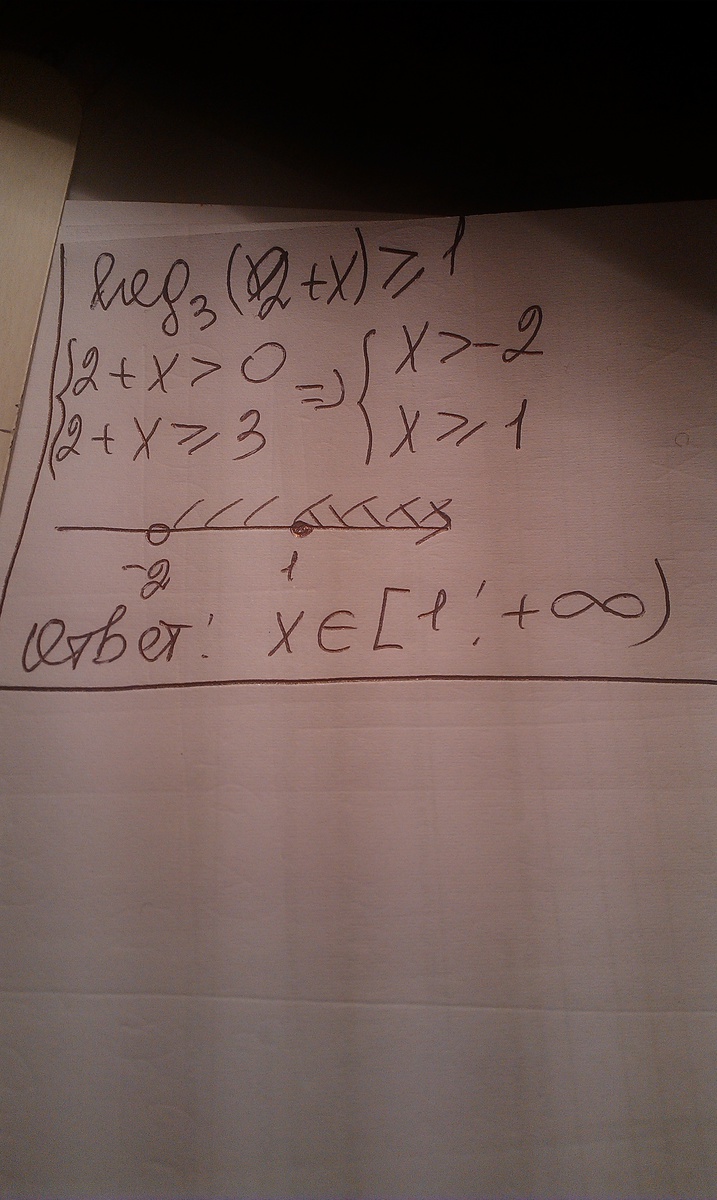 log₃(2+x) ≥ 1
{2+x > 0 => {x > -2
{2+x ≥ 3 {x ≥ 1
-2 1
Ответ: x ∈ [1; +∞)